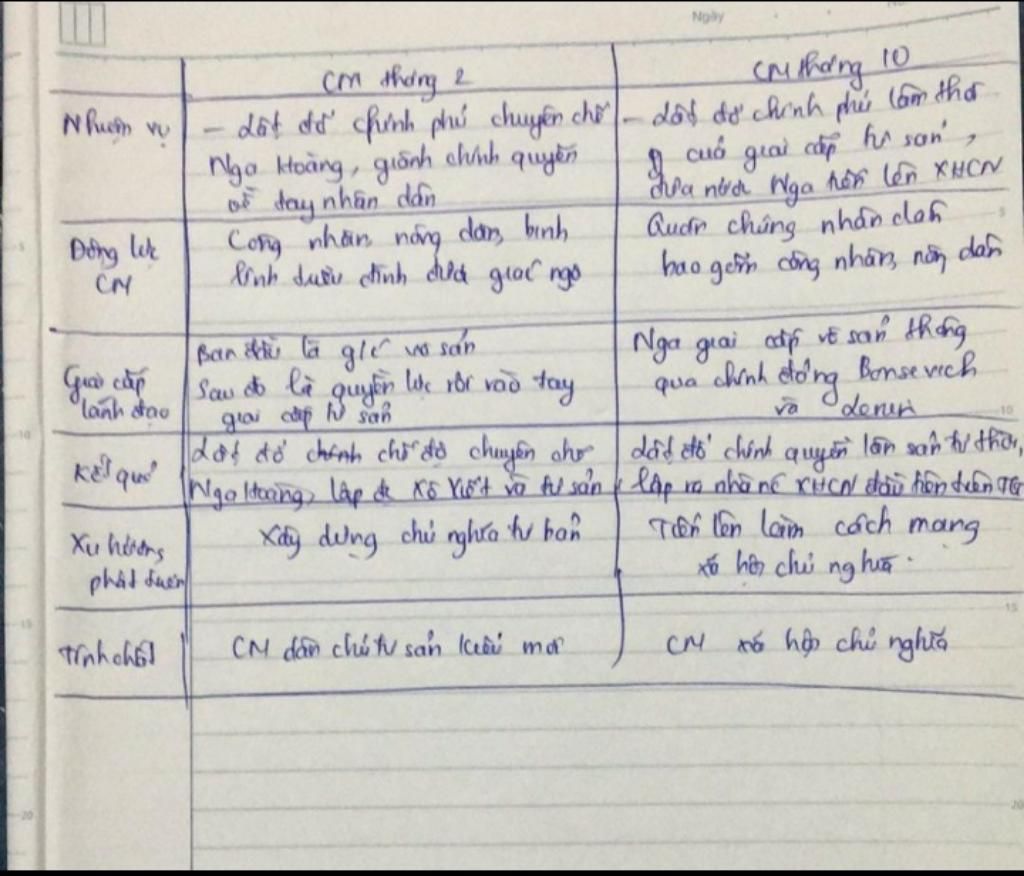 Ngày
CM tháng 2
CM tháng 10
Nhiệm vụ
- Lật đổ chính phủ chuyên chế
Nga Hoàng, giành chính quyền
về tay nhân dân
- Lật đổ chính phủ lâm thời
của giai cấp tư sản,
đưa nước Nga tiến lên XHCN
Động lực
CM
Công nhân, nông dân, binh
lính
giác ngộ
Quần chúng nhân dân
bao gồm công nhân, nông dân
Giai cấp
lãnh đạo
Ban đầu là g/c vô sản
Sau đó là quyền lực rơi vào tay
giai cấp tư sản
Nga giai cấp vô sản thông
qua chính đảng Bonsevich
và Lenin
Kết quả
Lật đổ chính chế độ chuyên chế
Nga Hoàng, lập Xô Viết và tư sản
Lật đổ chính quyền
lập ra nhà nc XHCN đầu tiên trên TG
Xu hướng
phát triển
Xây dựng chủ nghĩa tư bản
Tiến lên làm cách mạng
xã hội chủ nghĩa.
Tính chất
CM dân chủ tư sản kiểu mới
CM xã hội chủ nghĩa
5
10
15
20
5
10
15
20